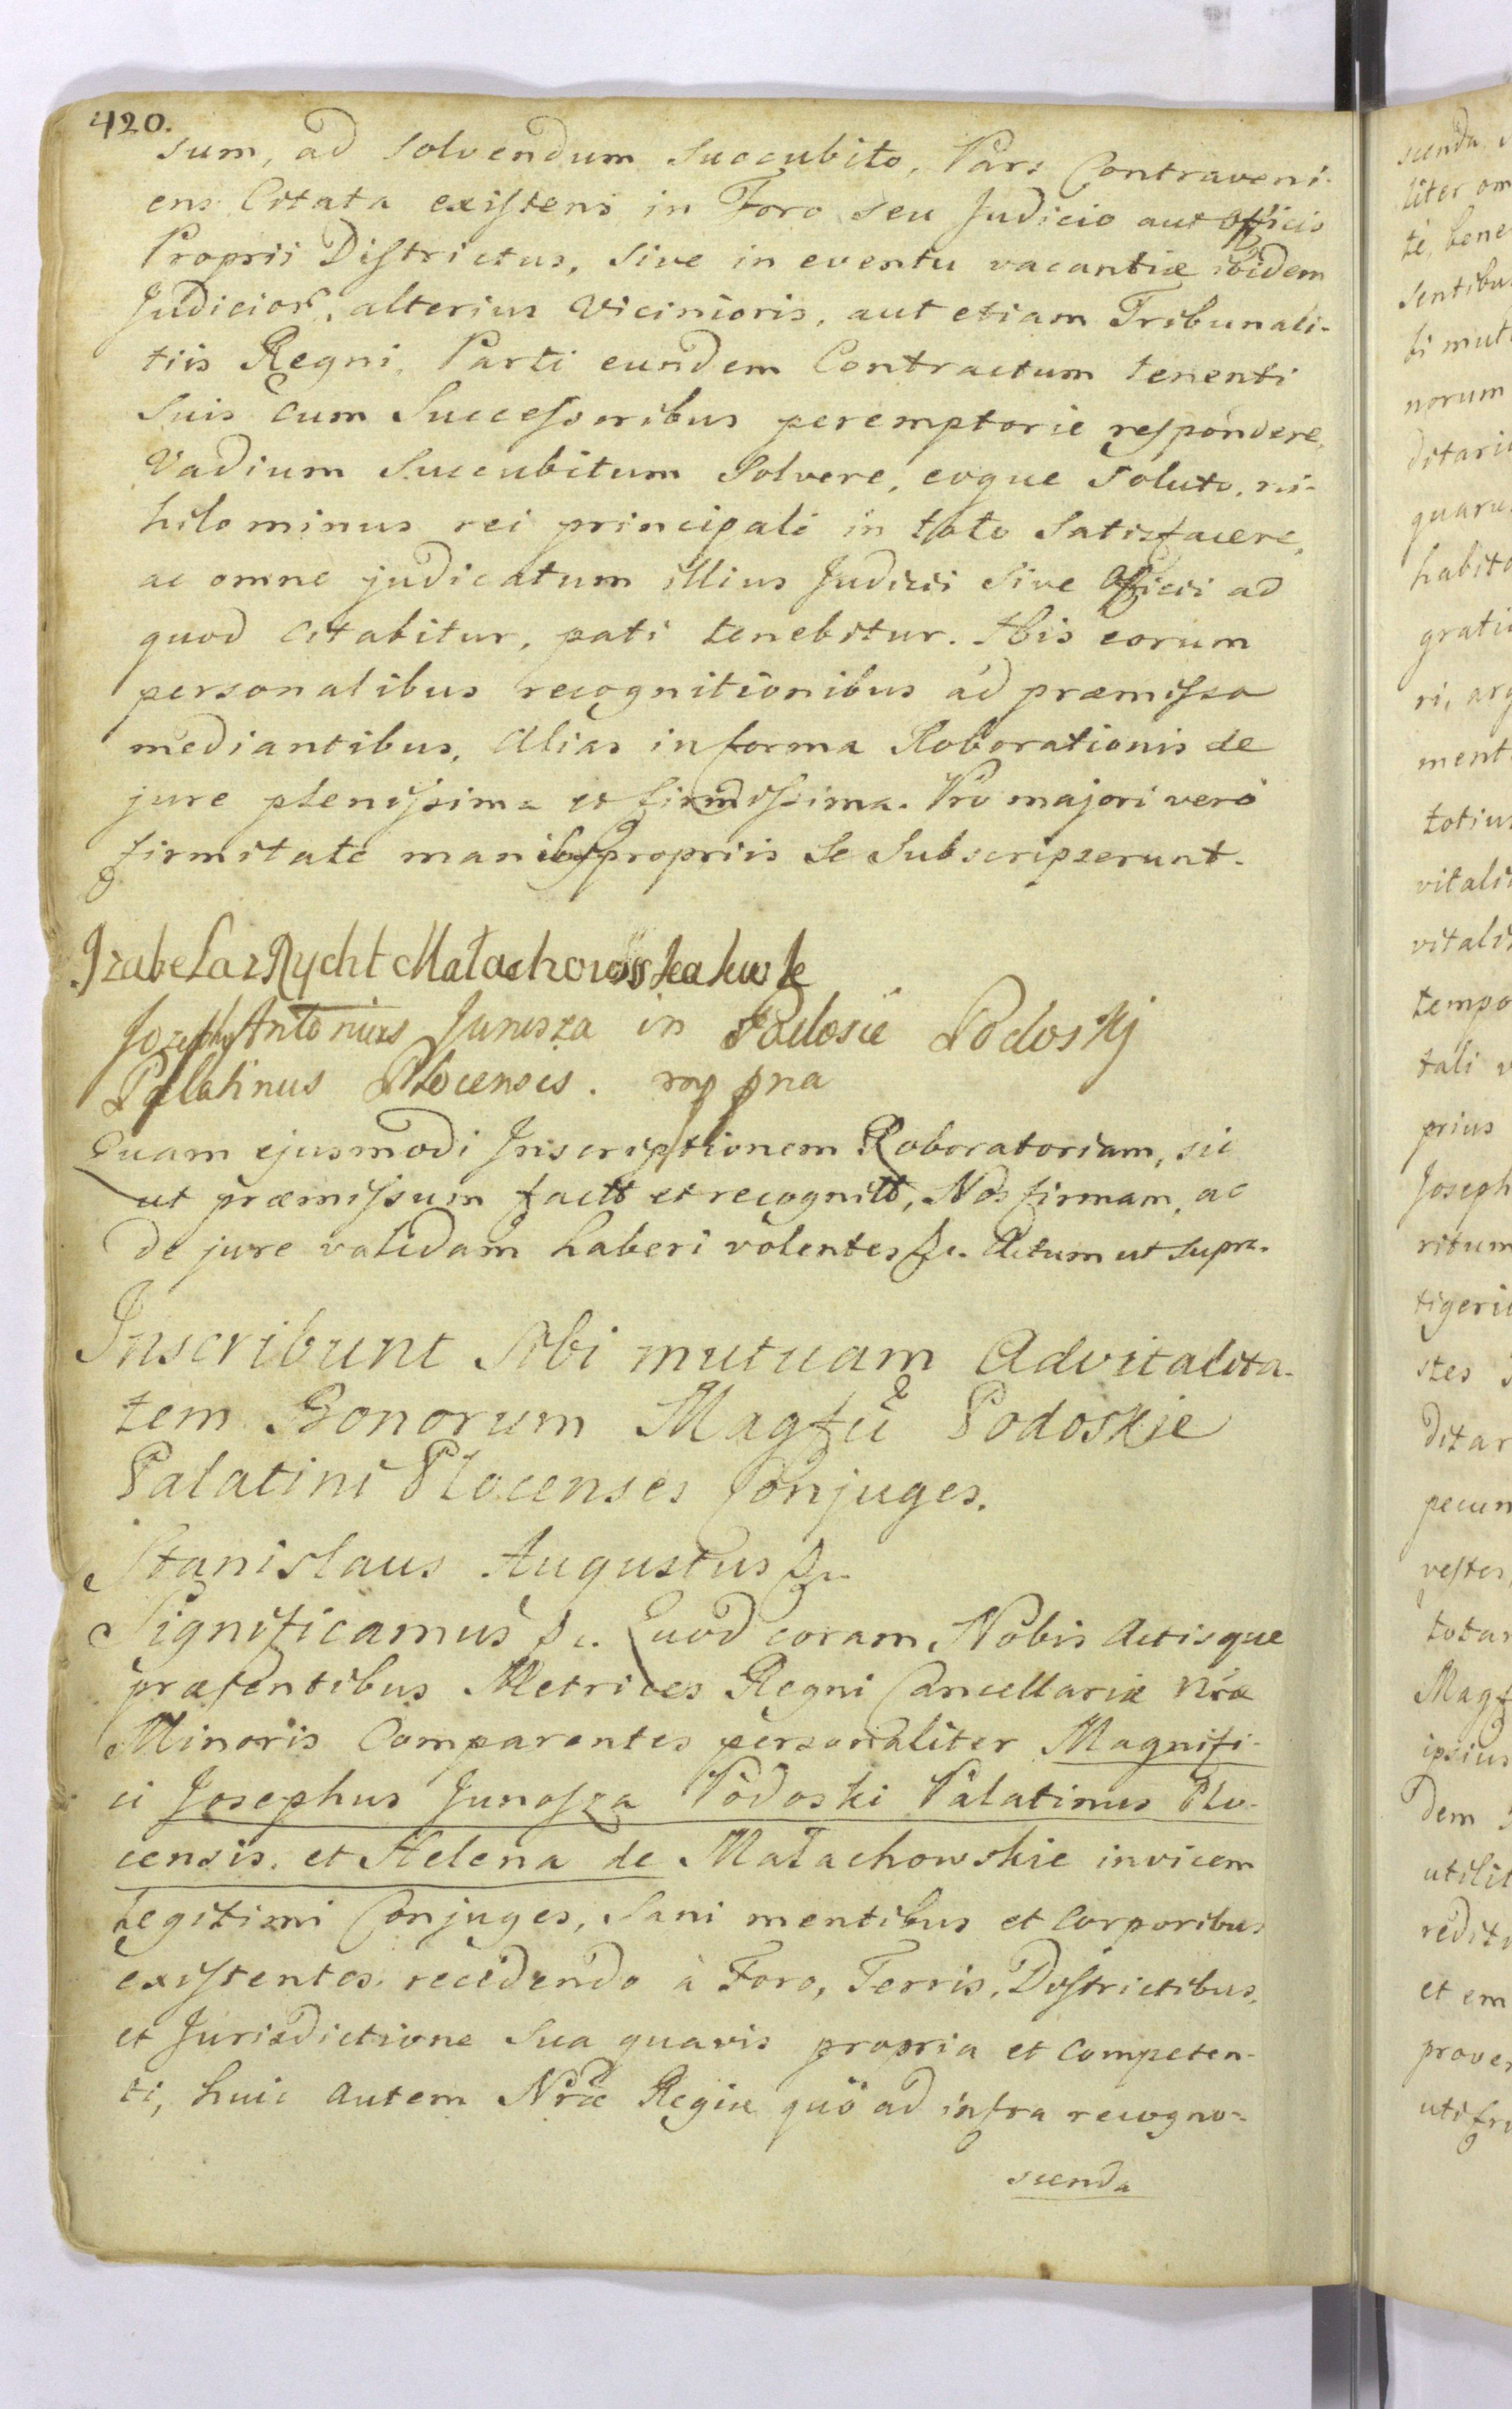 420.
sum, ad solvendum succubito, Pars Contraveni-
ens Citata existens in Foro seu Judicio aut Officis
Proprii Districtus, sive in eventu vacantiæ ibidem
Judicior, alterius Vicinioris, aut etiam Tribunali-
tiis Regni, Parti eundem Contractum tenenti
Suis cum Successoribus peremptorie respondere,
Vadium Succubitum Solvere, eoque Soluto, ni-
hilominus rei principali in toto Satisfacere,
ac omne judicatum illius Judicii Sive Officii ad
quod citabitur, pati tenebitur. His eorum
personalibus recognitionibus ad præmissa
mediantibus, Alias in forma Roborationis de
jure plenissima et firmissima. Pro majori verò
firmitate manibus propriis Se Subscripserunt.
Izabela z Rycht Małachowska kwk
Jozephus Antonius Junosza in Podosie Podoskj
Palatinus Plocensis. mp pna
Quam ejusmodi Inscriptionem Roboratoriam, sic
ut præmissum factt et recognitt, Nos firmam, ac
de jure validam haberi volentes &c. Actum ut supra.
Inscribunt Sibi mutuam Advitalita-
tem Bonorum Magfü Podoskie
Palatini Plocenses Conjuges.
Stanislaus Augustus &c.
Significamus &c. Quod coram Nobis Actisque
præsentibus Metrices Regni Cancellariæ Nræ
Minoris Comparentes personaliter Magnifi-
ci Josephus Junosza Podoski Palatinus Plo-
censis, et Helena de Małachowskie invicem
Legitimi Conjuges, Sani mentibus et Corporibus
existentes, recedendo à Foro, Terris, Districtibus,
et Jurisdictione Sua quavis propria et Competen-
ti, huic autem Nræ Regiæ quò ad infra recogno-
scenda